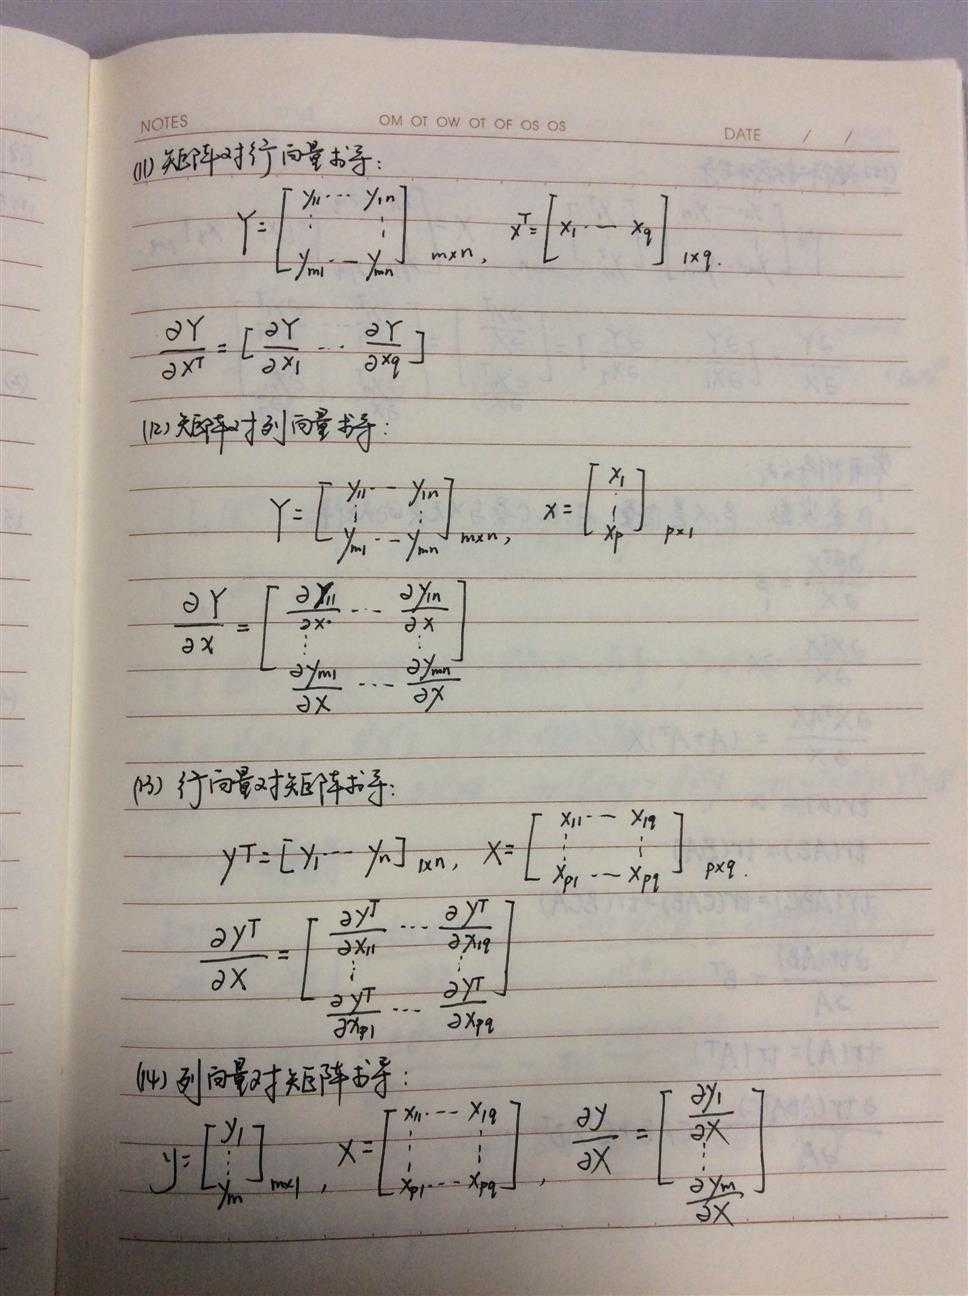 NOTES OM OT OW OT OF OS OS DATE / /
(11) 矩阵对行向量求导:
Y = [y11 ··· y1n ⋮ ⋮ ym1 ··· ymn] m×n, x^T = [x1 ··· xq] 1×q.
∂Y/∂x^T = [∂Y/∂x1 ··· ∂Y/∂xq]
(12) 矩阵对列向量求导:
Y = [y11 ··· y1n ⋮ ⋮ ym1 ··· ymn] m×n, x = [x1 ⋮ xp] p×1
∂Y/∂x = [∂y11/∂x ··· ∂y1n/∂x ⋮ ⋮ ∂ym1/∂x ··· ∂ymn/∂x]
(13) 行向量对矩阵求导:
y^T = [y1 ··· yn] 1×n, X = [x11 ··· x1q ⋮ ⋮ xp1 ··· xpq] p×q.
∂y^T/∂X = [∂y^T/∂x11 ··· ∂y^T/∂x1q ⋮ ⋮ ∂y^T/∂xp1 ··· ∂y^T/∂xpq]
(14) 列向量对矩阵求导:
y = [y1 ⋮ ym] m×1, X = [x11 ··· x1q ⋮ ⋮ xp1 ··· xpq], ∂y/∂X = [∂y1/∂X ⋮ ∂ym/∂X]